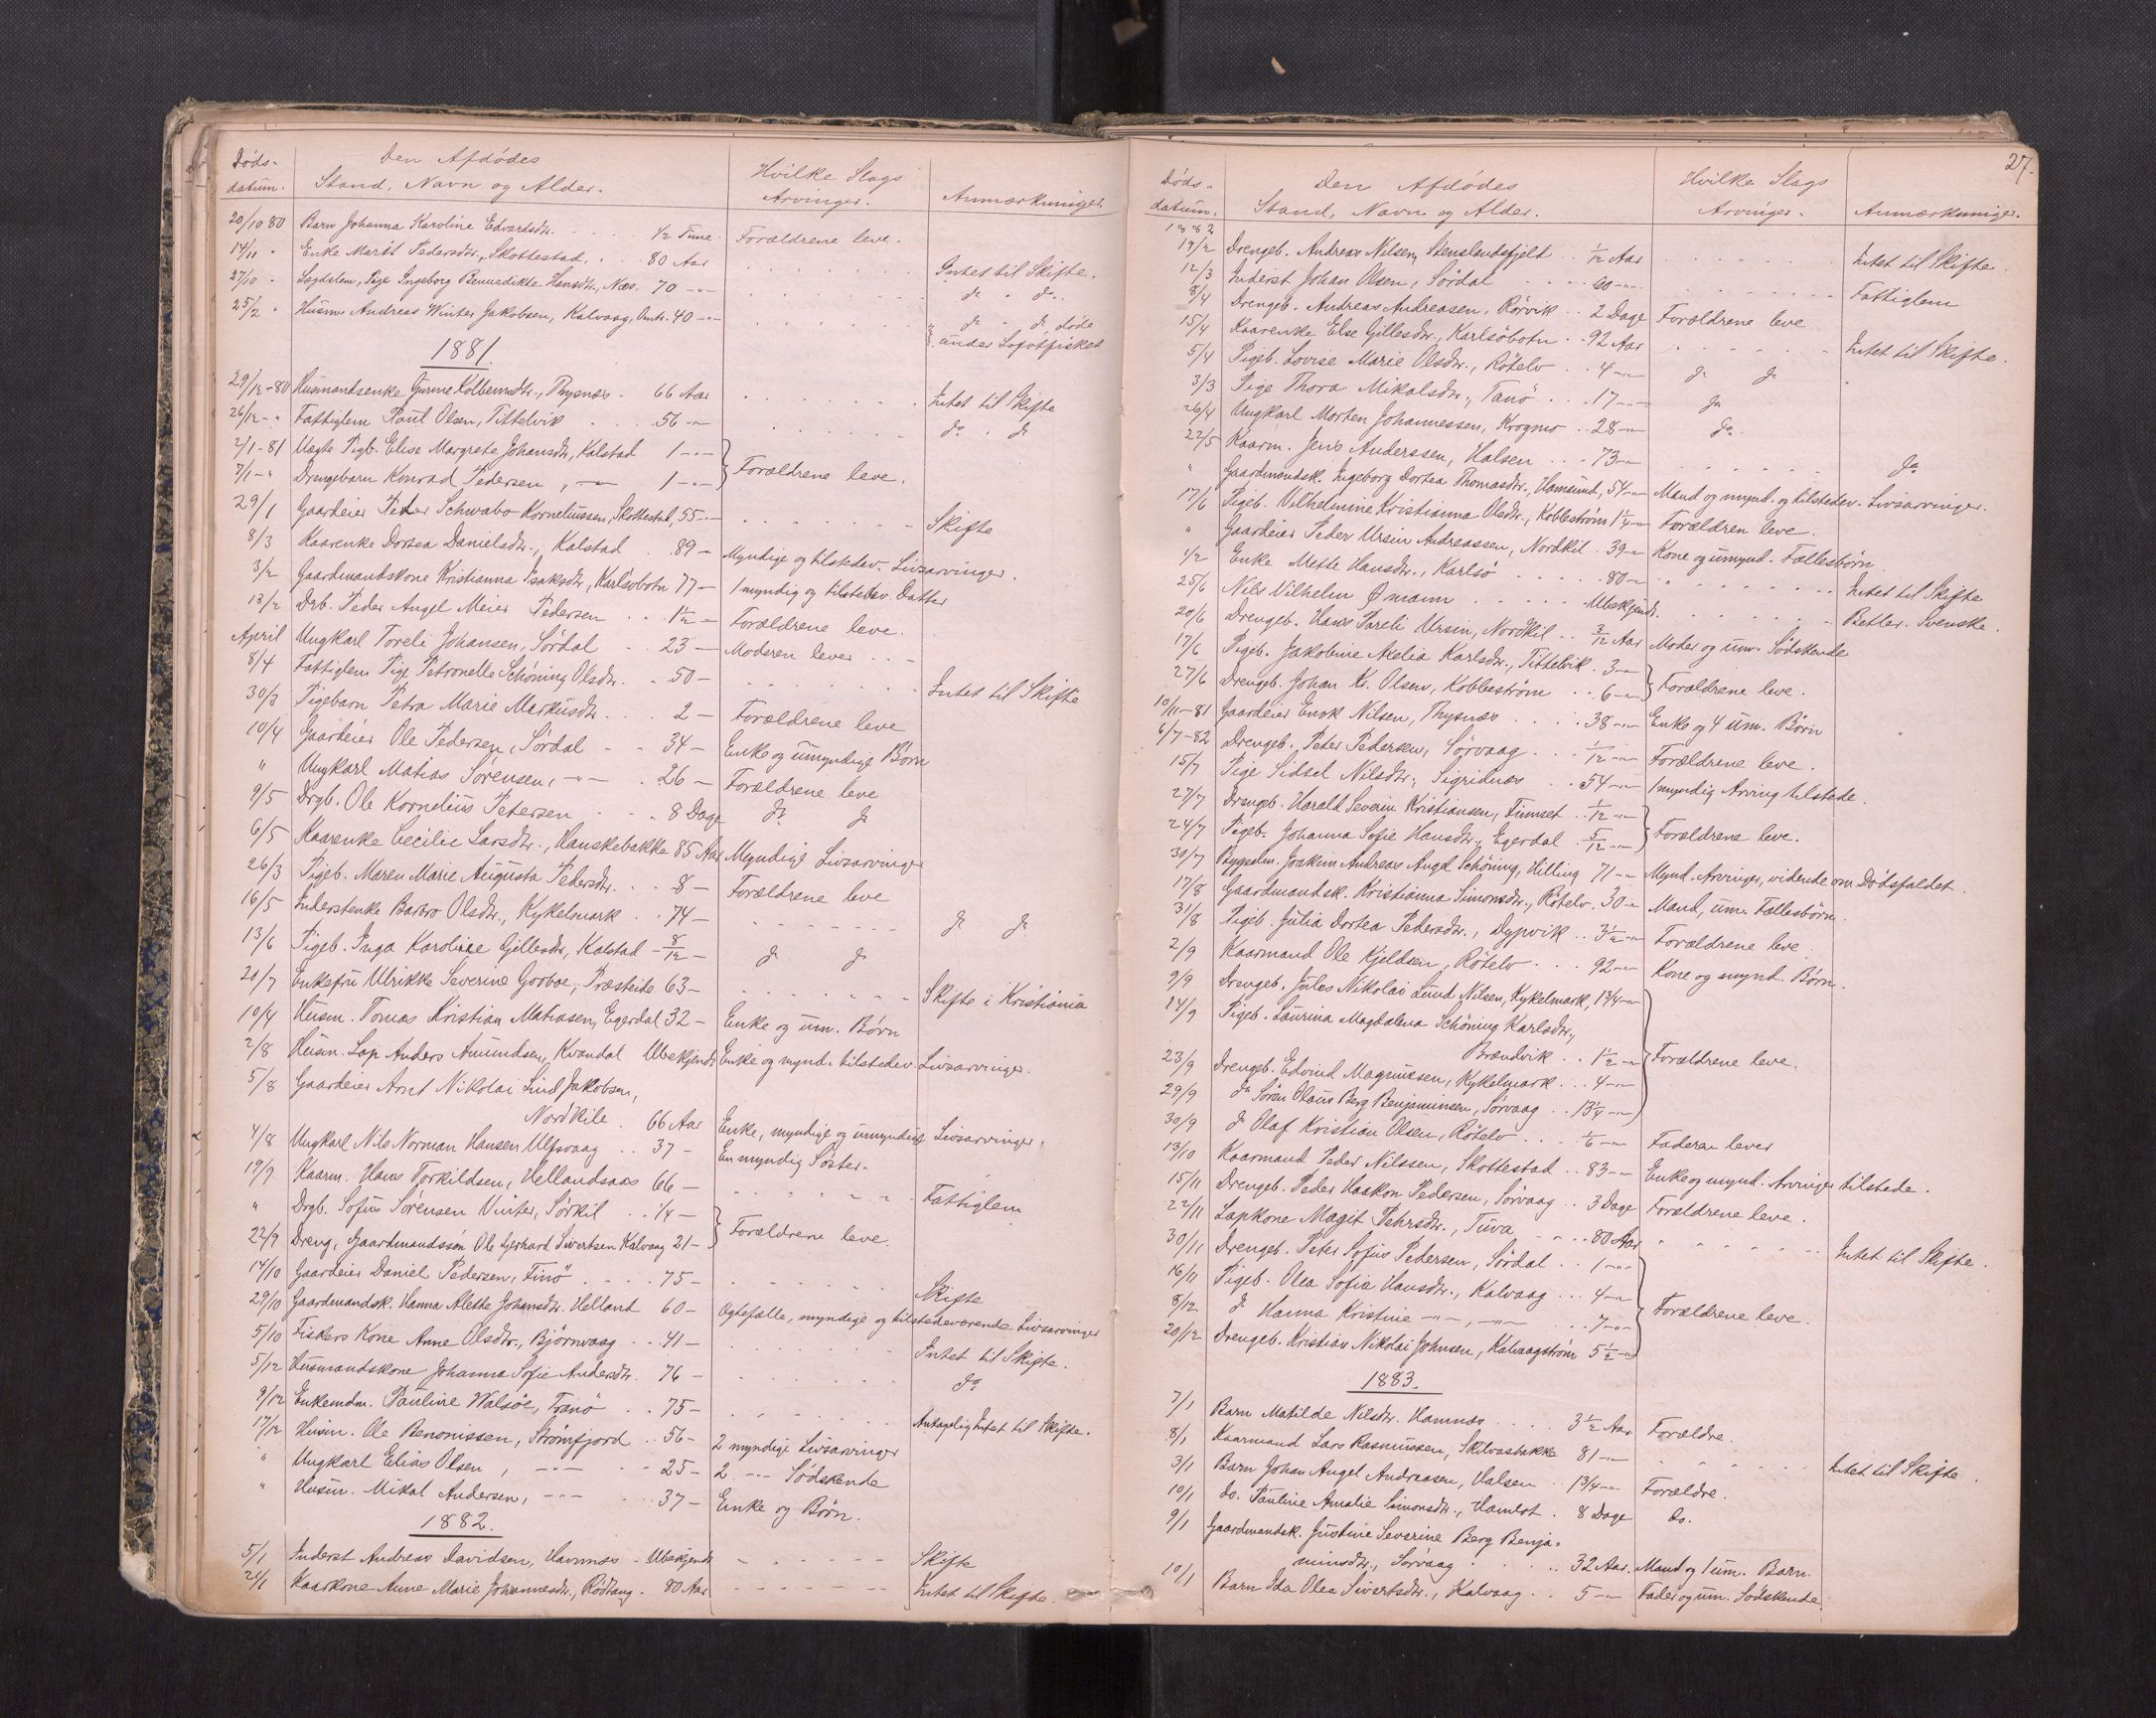 Döds-
datum.
Den Afdödes
Stand, Navn og Alder.
Hvilke Slags
Arvinger.
Anmærkninger.
20/10 80 Barn Johanna Karoline Edvardsdtr. 1/2 Time Forældrene leve.
14/11 " Enke Marit Pedersdtr., Skottestad. 80 Aar Intet til Skifte.
27/10 " Lægdslem, Pige Ingeborg Bennedikte Hansdtr., Næs. 70 -"- do " do.
25/2 " Husm. Andreas Winter Jakobsen, Kalvaag, Omtr. 40 -"- do " do, døde
under Lofotfisket
1881.
29/12-80 Husmandsenke Gurine Kolbensdtr., Thysnæs - 66 Aar Intet til Skifte
26/12-" Fattiglem Poul Olsen, Tittelvik 56 -"- do " do
2/1-81 Uægte Pigb. Elise Margrete Johansdtr., Kalstad 1 -"-
7/1-" Drengebarn Konrad Pedersen, -"- 1 -"- Forældrene leve.
29/1 Gaardeier Peder Schwabo Korneliussen, Skottestad, 55 -"- Skifte
8/3 Kaarenke Dortea Danielsdtr., Kalstad 89 - Myndige og tilstedev. Livsarvinger.
3/2 Gaardmandskone Kristianna Isaksdtr., Karlsöbotn 77 - 1 myndig og tilstedev. Datter
13/2 Drb. Peder Angel Meier Pedersen 1 1/2 - Forældrene leve.
April Ungkarl Toreli Johansen, Sördal 23 - Moderen lever
8/4 Fattiglem Pige Petronelle Schöning Olsdtr. 50 - Intet til Skifte
30/3 Pigebarn Petra Marie Markusdtr. 2 - Forældrene leve
10/4 Gaardeier Ole Pedersen, Sördal 34 - Enke og umyndige Börn
" Ungkarl Matias Sörensen, -"- 26 - Forældrene leve
9/5 Drgb. Ole Kornelius Petersen 8 Dage do do
6/5 Kaarenke Cecilie Larsdtr., Hanskebakke 85 Aar Myndige Livsarvinger
26/3 Pigeb. Maren Marie Augusta Pedersdtr. 8 - Forældrene leve
16/5 Inderstenke Barbro Olsdtr., Kykelmark 74 - do do
13/6 Pigeb. Inga Karoline Gillesdtr., Kalstad 8/12 - do do
20/7 Enkefru Ulrikke Severine Gooboe, Præsteide 63 - Skifte i Kristiania
10/4 Husm. Tomas Kristian Matiasen, Egerdal 32 - Enke og um. Börn
2/8 Husm. Lap Anders Amundsen, Kvandal Ubekjendt Enke og mynd. tilstedev. Livsarvinger.
5/8 Gaardeier Arnt Nikolai Lind Jakobsen,
Nordkile. 66 Aar Enke, myndige og umyndige Livsarvinger.
4/8 Ungkarl Nils Norman Hansen Ulfsvaag 37 - En myndig Söster.
19/7 Kaarm. Hans Torkildsen, Hellandsaas 66 - Fattiglem
" Drgb. Sofus Sörensen Vinter, Sörkil 1/4 -
22/9 Dreng, Gaardmandssön Ole Gerhard Sivertsen Kalvaag 21 - Forældrene leve.
14/10 Gaardeier Daniel Pedersen, Finö 75 - Skifte
29/10 Gaardmandsk. Hanna Alethe Johansdtr. Helland 60 - Ægtefælle, myndige og tilstedeværende Livsarvinger
5/10 Fiskers Kone Anne Olsdtr., Björnvaag 41 - Intet til Skifte.
5/12 Husmandskone Johanna Sofie Andersdtr. 76 - do
9/12 Enkemdm. Pauline Walsöe, Tranö 75 - Antagelig Intet til Skifte.
17/12 Husm. Ole Benonissen, Strömfjord 56 - 2 myndige Livsarvinger
" Ungkarl Elias Olsen, -"- 25 - 2 -"- Södskende
" Husm. Mikal Andersen, -"- 37 - Enke og Börn.
1882.
5/1 Inderst Andreas Davidsen, Havnnæs - Ubekjendt Skifte
24/1 Kaarkone Anne Marie Johannesdtr., Rödtang. 80 Aar Intet til Skifte.
27.
Döds-
datum.
Den Afdödes
Stand, Navn og Alder.
Hvilke Slags
Arvinger.
Anmærkninger.
1882
19/2 Drengeb. Andreas Nilsen, Stenslandsfjeld 1/12 Aar Intet til Skifte.
12/3 Inderst Johan Olsen, Sördal 60 -"- Fattiglem
8/4 Drengeb. Andreas Andreasen, Rörvik 2 Dage Forældrene leve
15/4 Kaarenke Else Gillesdtr., Karlsöbotn 92 Aar Intet til Skifte.
5/4 Pigeb. Lovise Marie Olsdtr., Rötelv 4 -"- do do
3/3 Pige Thora Mikalsdtr., Tanö 17 -"- do
26/4 Ungkarl Morten Johannessen, Krogmo 28 -"- do
22/5 Kaarm. Jens Anderssen, Halsen 73 -"- do
" Gaardmandsk. Ingeborg Dortea Thomasdtr., Hamsund, 54 -"- Mand og mynd. og tilstedev. Livsarvinger.
17/6 Pigeb. Vilhelmine Kristianna Olsdtr., Kobbeström 1 1/4 -"- Forældren leve.
" Gaardeier Peder Ursin Andreassen, Nordkil 39 -"- Kone og umynd. Fællesbörn
4/2 Enke Mette Hansdtr., Karlsö 80 -"- Intet til Skifte
25/6 Nils Vilhelm Ømann Ubekjendt. Betler. Svenske.
20/6 Drengeb. Hans Pareli Ursin, Nordkil 3/12 Aar Moder og um. Södskende
17/6 Pigeb. Jakobine Axelia Karlsdtr., Tittelvik 3 -"-
27/6 Drengeb. Johan Kr. Olsen, Kobbeström 6 -"- Forældrene leve.
10/11-81 Gaardeier Enok Nilsen, Thysnæs 38 -"- Enke og 4 um. Börn
6/7-82 Drengeb. Peter Pedersen, Sörvaag 1/12 -"- Forældrene leve.
15/7 Pige Sidsel Nilsdtr., Sigridnæs 54 -"- 1 myndig Arving tilstede.
27/7 Drengeb. Harald Severin Kristiansen, Tümset 1/12 -"-
24/7 Pigeb. Johanna Sofie Hansdtr., Egerdal 5/12 -"- Forældrene leve.
30/7 Bygselm. Joakim Andreas Angel Schöning, Hilling 71 -"- Mynd. Arvinger, vidende om Dödsfaldet.
17/8 Gaardmandsk. Kristianna Simonsdtr., Rötelv 30 -"- Mand, um. Fællesbörn.
31/8 Pigeb. Julia Dortea Pedersdtr., Dypvik 3 1/2 -"- Forældrene leve.
2/9 Kaarmand Ole Kjeldsen, Rötelv 92 -"- Kone og mynd. Börn.
9/9 Drengeb. Jules Nikolai Lund Nilsen, Kykelmark, 1 3/4 -"-
14/9 Pigeb. Laurina Magdalena Schöning Karlsdtr.,
Brændvik 1 1/2 -"- Forældrene leve.
23/9 Drengeb. Edvind Magnussen, Kykelmark 4 -"-
29/9 do Sören Olaus Berg Benjaminsen, Sörvaag 13 1/4 -"-
30/9 do Olaf Kristian Olsen, Rötelv 1/6 -"- Faderen lever
13/10 Kaarmand Peder Nilssen, Skottestad 83 -"- Enke og mynd. Arvinger tilstede.
15/11 Drengeb. Peder Haakon Pedersen, Sörvaag 3 Dage Forældrene leve.
22/11 Lapkone Magit Pehrsdtr., Tuva 80 Aar Intet til Skifte.
30/11 Drengeb. Peter Sofus Pedersen, Sördal 1 -"-
16/11 Pigeb. Olea Sofia Hansdtr., Kalvaag 4 -"-
8/12 do Hanna Kristine -"-, -"- 7 -"- Forældrene leve.
20/12 Drengeb. Kristian Nikolai Johnsen, Kalvaagström 5 1/2 -"-
1883.
7/1 Barn Matilde Nilsdtr. Hamnæs 3 1/2 Aar Forældre.
8/1 Kaarmand Lars Rasmussen, Skilvasbakke 81 -"- Intet til Skifte.
3/1 Barn Johan Angel Andreasen, Halsen 1 3/4 -"- Forældre.
10/1 do. Pauline Amalie Simonsdtr., Hamlot 8 Dage do.
9/1 Gaardmandsk. Justine Severine Berg Benja-
minsdtr., Sörvaag 32 Aar. Mand og 1 um. Barn
10/1 Barn Ida Olea Sivertsdtr., Kalvaag 5 -"- Fader og um. Södskende.